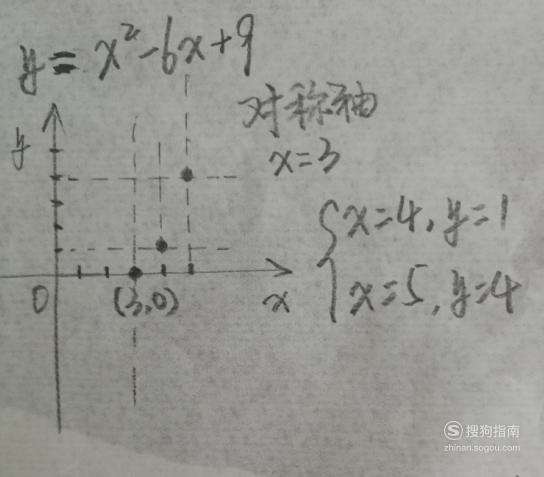 y=x²-6x+9
对称轴
x=3
y
{x=4,y=1
x=5,y=4
0
(3,0)
x
搜狗指南
zhinan.sogou.com